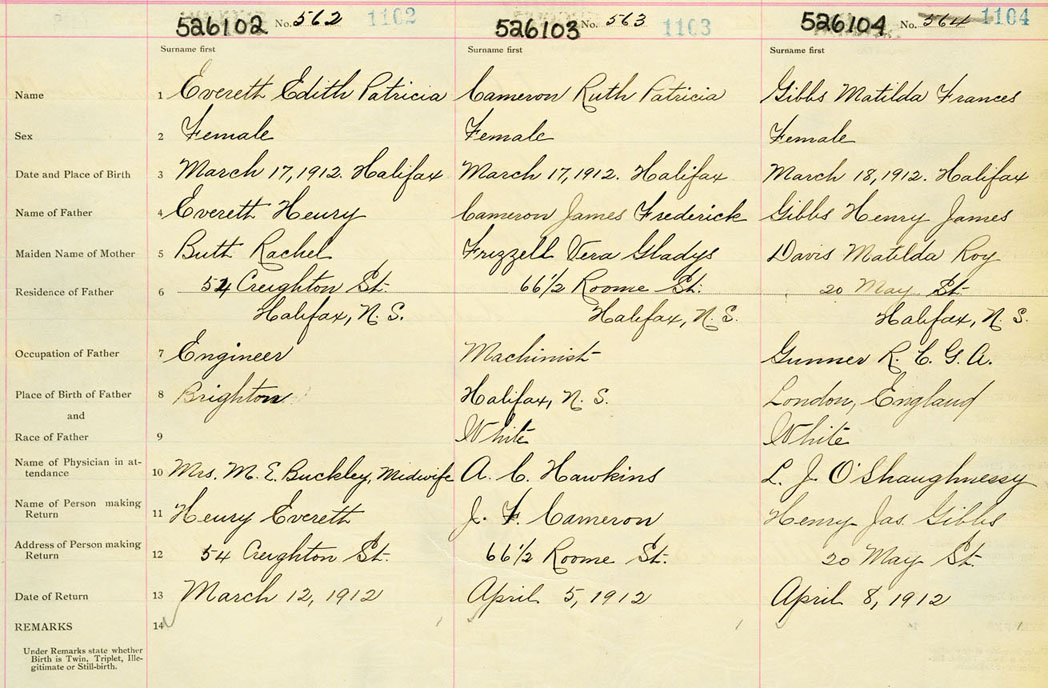 526102 No. 562 1102 526103 No. 563 1103 526104 No. 564 1104
Surname first Surname first Surname first
Name 1 Everett Edith Patricia Cameron Ruth Patricia Gibbs Matilda Frances
Sex 2 Female Female Female
Date and Place of Birth 3 March 17, 1912. Halifax March 17, 1912. Halifax March 18, 1912. Halifax
Name of Father 4 Everett Henry Cameron James Frederick Gibbs Henry James
Maiden Name of Mother 5 Butt Rachel Frizzell Vera Gladys Davis Matilda Roy
Residence of Father 6 54 Creighton St. 66 1/2 Roome St. 20 May St.
Halifax, N. S. Halifax, N. S. Halifax, N. S.
Occupation of Father 7 Engineer Machinist Gunner R. C. G. A.
Place of Birth of Father 8 Brighton Halifax, N. S. London, England
and
Race of Father 9 White White
Name of Physician in at-
tendance 10 Mrs. M. E. Buckley, Midwife A. C. Hawkins L. J. O'Shaughnessy
Name of Person making
Return 11 Henry Everett J. F. Cameron Henry Jas. Gibbs
Address of Person making
Return 12 54 Creighton St. 66 1/2 Roome St. 20 May St.
Date of Return 13 March 12, 1912 April 5, 1912 April 8, 1912
REMARKS 14
Under Remarks state whether
Birth is Twin, Triplet, Ille-
gitimate or Still-birth.